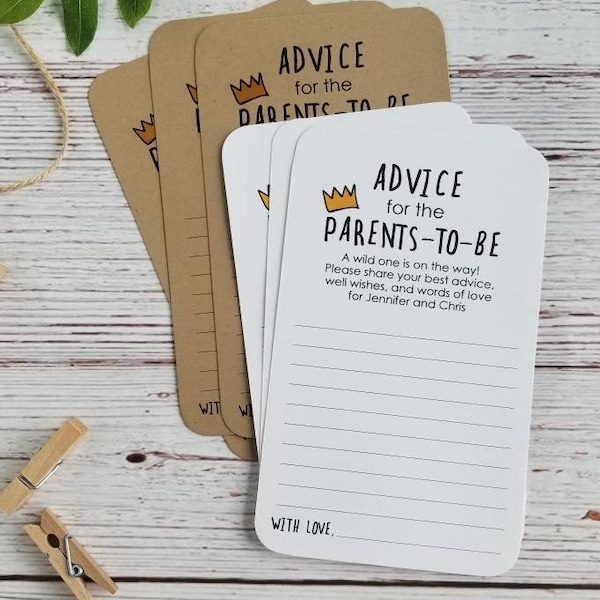 ADVICE
for the
PARENTS-TO-BE
ADVICE
for the
PARENTS-TO-BE
A wild one is on the way!
Please share your best advice,
well wishes, and words of love
for Jennifer and Chris
WITH LOVE,